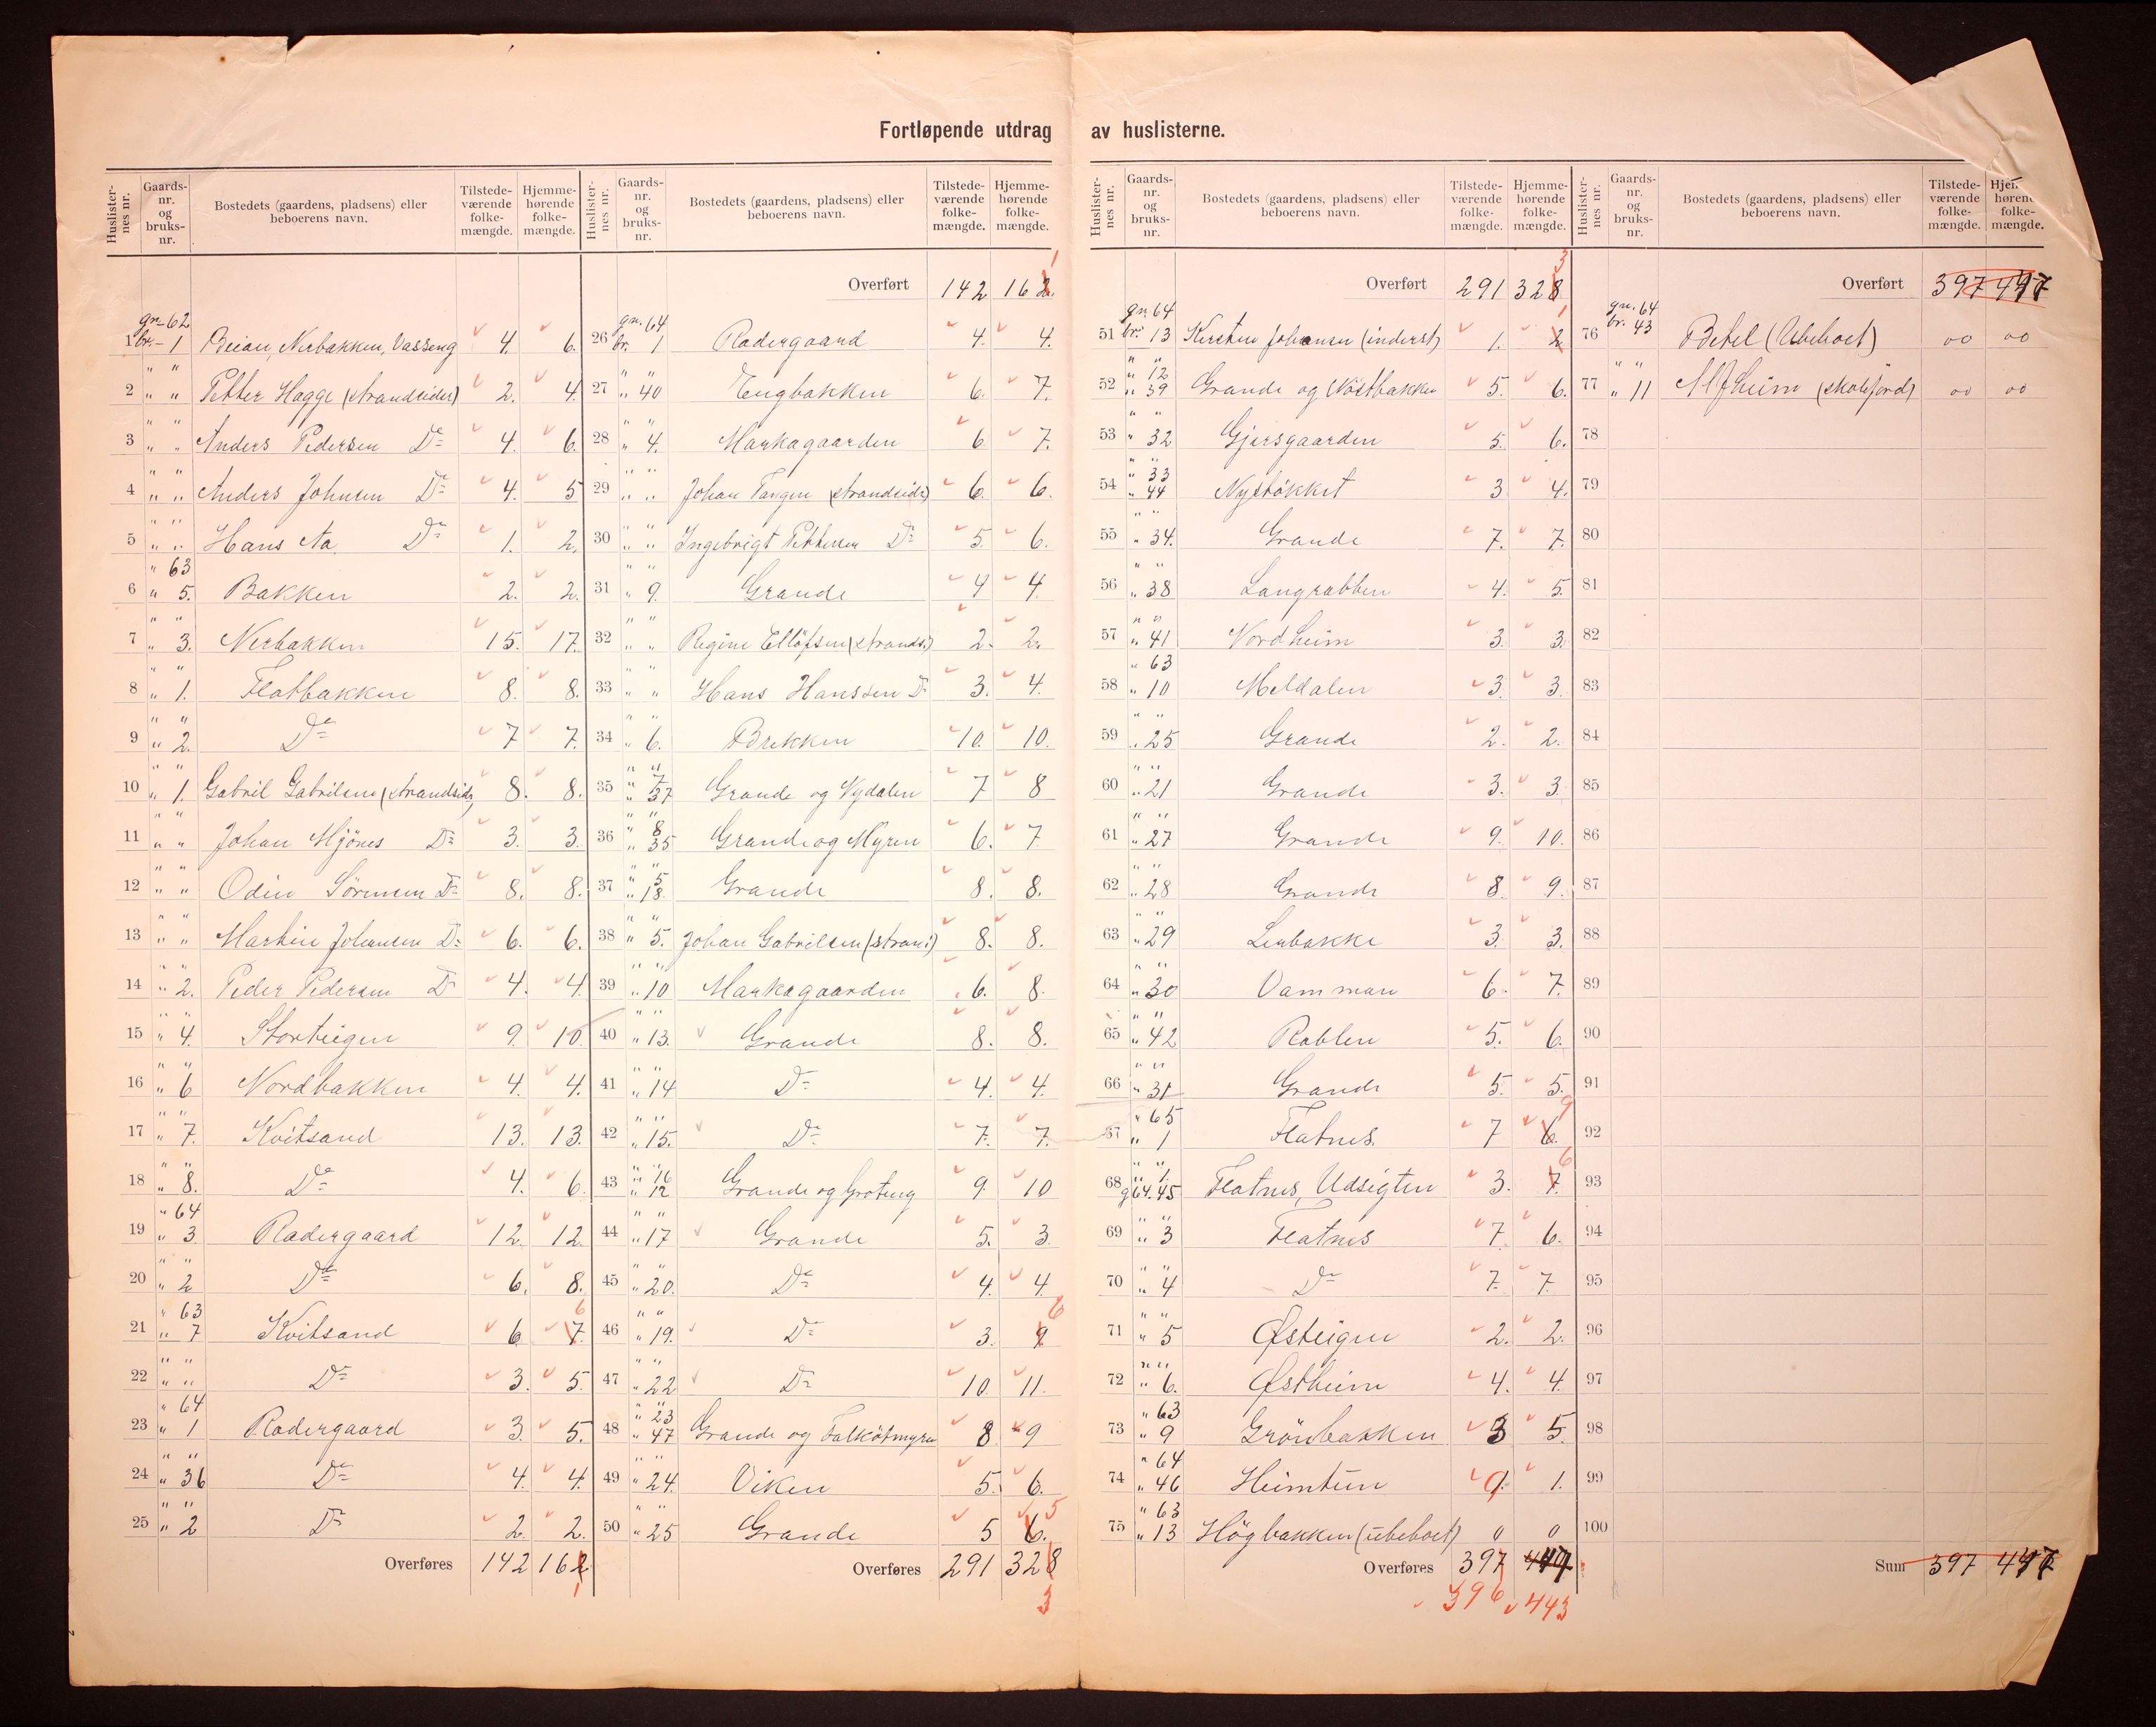 Fortløpende utdrag av huslisterne.
Huslisternes nr. | Gaards-nr. og bruks-nr. | Bostedets (gaardens, pladsens) eller beboerens navn. | Tilstedeværende folkemængde. | Hjemmehørende folkemængde.
gn. 62
1 br. 1 Beian, Nerbakken, Vasseng 4. 6.
2 " " Petter Hagge (strandsider) 2. 4.
3 " " Anders Pedersen Do 4. 6.
4 " " Anders Johnsen Do 4. 5
5 " " Hans Aa Do 1. 2.
" 63
6 " 5. Bakken 2. 2.
7 " 3. Nerbakken 15. 17.
8 " 1. Flatbakken 8. 8.
9 " 2. Do 7 7.
10 " 1. Gabriel Gabrielsen (strandsid. 8. 8.
11 " " Johan Mjönes Do 3. 3.
12 " " Odin Sörensen Do 8. 8.
13 " " Martin Johansen Do 6. 6.
14 " 2. Peder Pedersen Do 4. 4
15 " 4. Storteigen 9. 10
16 " 6 Nordbakken 4. 4.
17 " 7. Kvitsand 13. 13.
18 " 8. Do 4. 6.
" 64
19 " 3. Radergaard 12. 12.
20 " 2 Do 6. 8.
" 63
21 " 7 Kvitsand 6 7. 6
22 " " Do 3. 5.
" 64
23 " 1 Radergaard 3. 5.
24 " 36 Do 4. 4.
25 " 2 Do 2. 2.
Overføres 142 162 1
Huslisternes nr. | Gaards-nr. og bruks-nr. | Bostedets (gaardens, pladsens) eller beboerens navn. | Tilstedeværende folkemængde. | Hjemmehørende folkemængde.
Overført 142 162. 1
gn. 64
26 br. 1 Radergaard 4. 4.
27 " 40 Engbakken 6. 7.
28 " 4. Markagaarden 6 7.
29 " " Johan Tangen (strandsidr) 6. 6.
30 " " Ingebrigt Pettersen Do 5. 6.
31 " 9. Grande 4 4.
32 " " Regine Ellöfsen (strands.) 2. 2.
33 " " Hans Hanssen Do 3. 4.
34 " 6. Brekken 10. 10.
35 " 7 " 37 Grande og Nydalen 7 8
36 " 8 " 35 Grande og Myren 6. 7.
37 " 5 " 18. Grande 8. 8.
38 " 5. Johan Gabrielsen (strans) 8. 8.
39 " 10 Markagaarden 6. 8.
40 " 13. Grande 8. 8.
41 " 14 Do 4. 4.
42 " 15. Do 7. 7.
43 " 16 " 12 Grande og Groteng 9 10
44 " 17 Grande 5. 3.
45 " 20. Do 4. 4.
46 " 19. Do 3. 9 6
47 " 22 Do 10. 11.
48 " 23 " 47 Grande og Falkötmyren 8 9
49 " 24. Viken 5. 6.
50 " 25 Grande 5 6. 5
Overføres 291 328 3
Huslisternes nr. | Gaards-nr. og bruks-nr. | Bostedets (gaardens, pladsens) eller beboerens navn. | Tilstedeværende folkemængde. | Hjemmehørende folkemængde.
Overført 291 328 3
gn. 64
51 br. 13 Kirsten Johansen (inderst) 1. 2 1
52 " 12 " 39 Grande og Nöstbakken 5. 6.
53 " 32 Gjersgaarden 5. 6.
54 " 33 " 44 Nystökket 3 4.
55 " 34. Grande 7. 7.
56 " 38 Langrabben 4. 5.
57 " 41 Nordheim 3. 3.
" 63
58 " 10 Meldalen 3. 3.
59 " 25 Grande 2. 2.
60 " 21 Grande 3. 3.
61 " 27 Grande 9. 10.
62 " 28 Grande 8 9.
63 " 29 Leabakke 3. 3.
64 " 30 Vamman 6. 7.
65 " 42 Rabben 5. 6.
66 " 31 Grande 5. 5.
" 65
67 " 1 Flatnes. 7 6. 9
68 " 1. g 64.45 Flatnes, Udsigten 3. 7. 6
69 " 3 Flatnes 7. 6.
70 " 4 Do 7. 7.
71 " 5 Østeigen 2. 2.
72 " 6. Østheim 4. 4.
" 63
73 " 9 Grönbakken 3 5.
" 64
74 " 46 Heimtun 0 1.
" 63
75 " 13 Högbakken (ubeboet) 0 0
Overføres 397 447
396 443
Huslisternes nr. | Gaards-nr. og bruks-nr. | Bostedets (gaardens, pladsens) eller beboerens navn. | Tilstedeværende folkemængde. | Hjemmehørende folkemængde.
Overført 397 447
gn. 64
76 br. 43 Betel (Ubeboet) oo oo
77 " 11 Alfheim (skolejord) oo oo
78
79
80
81
82
83
84
85
86
87
88
89
90
91
92
93
94
95
96
97
98
99
100
Sum 397 447